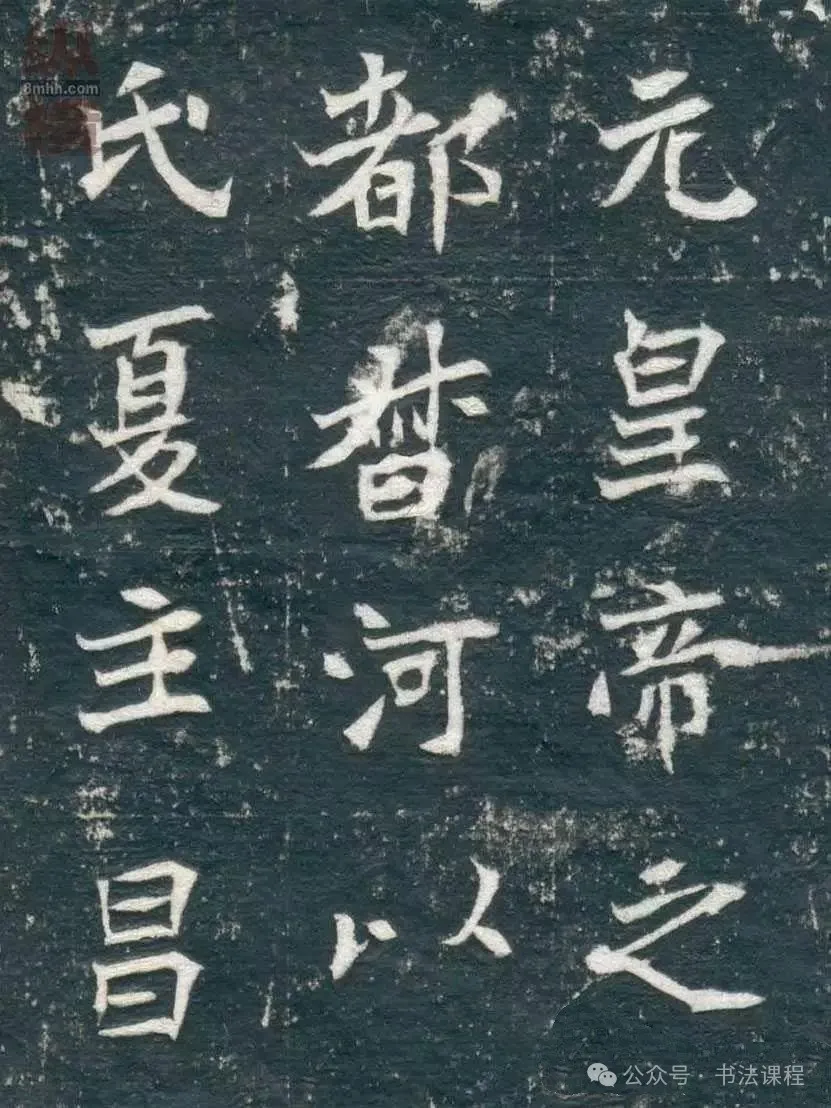 元皇帝之
都督河以
氏夏主昌
8mhh.com
公众号 · 书法课程